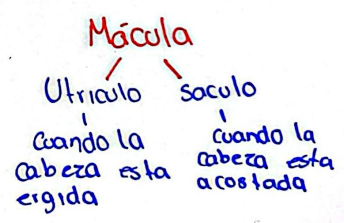 Mácula
Utriculo
saculo
Cuando la
cabeza esta
ergida
Cuando la
cabeza esta
acostada